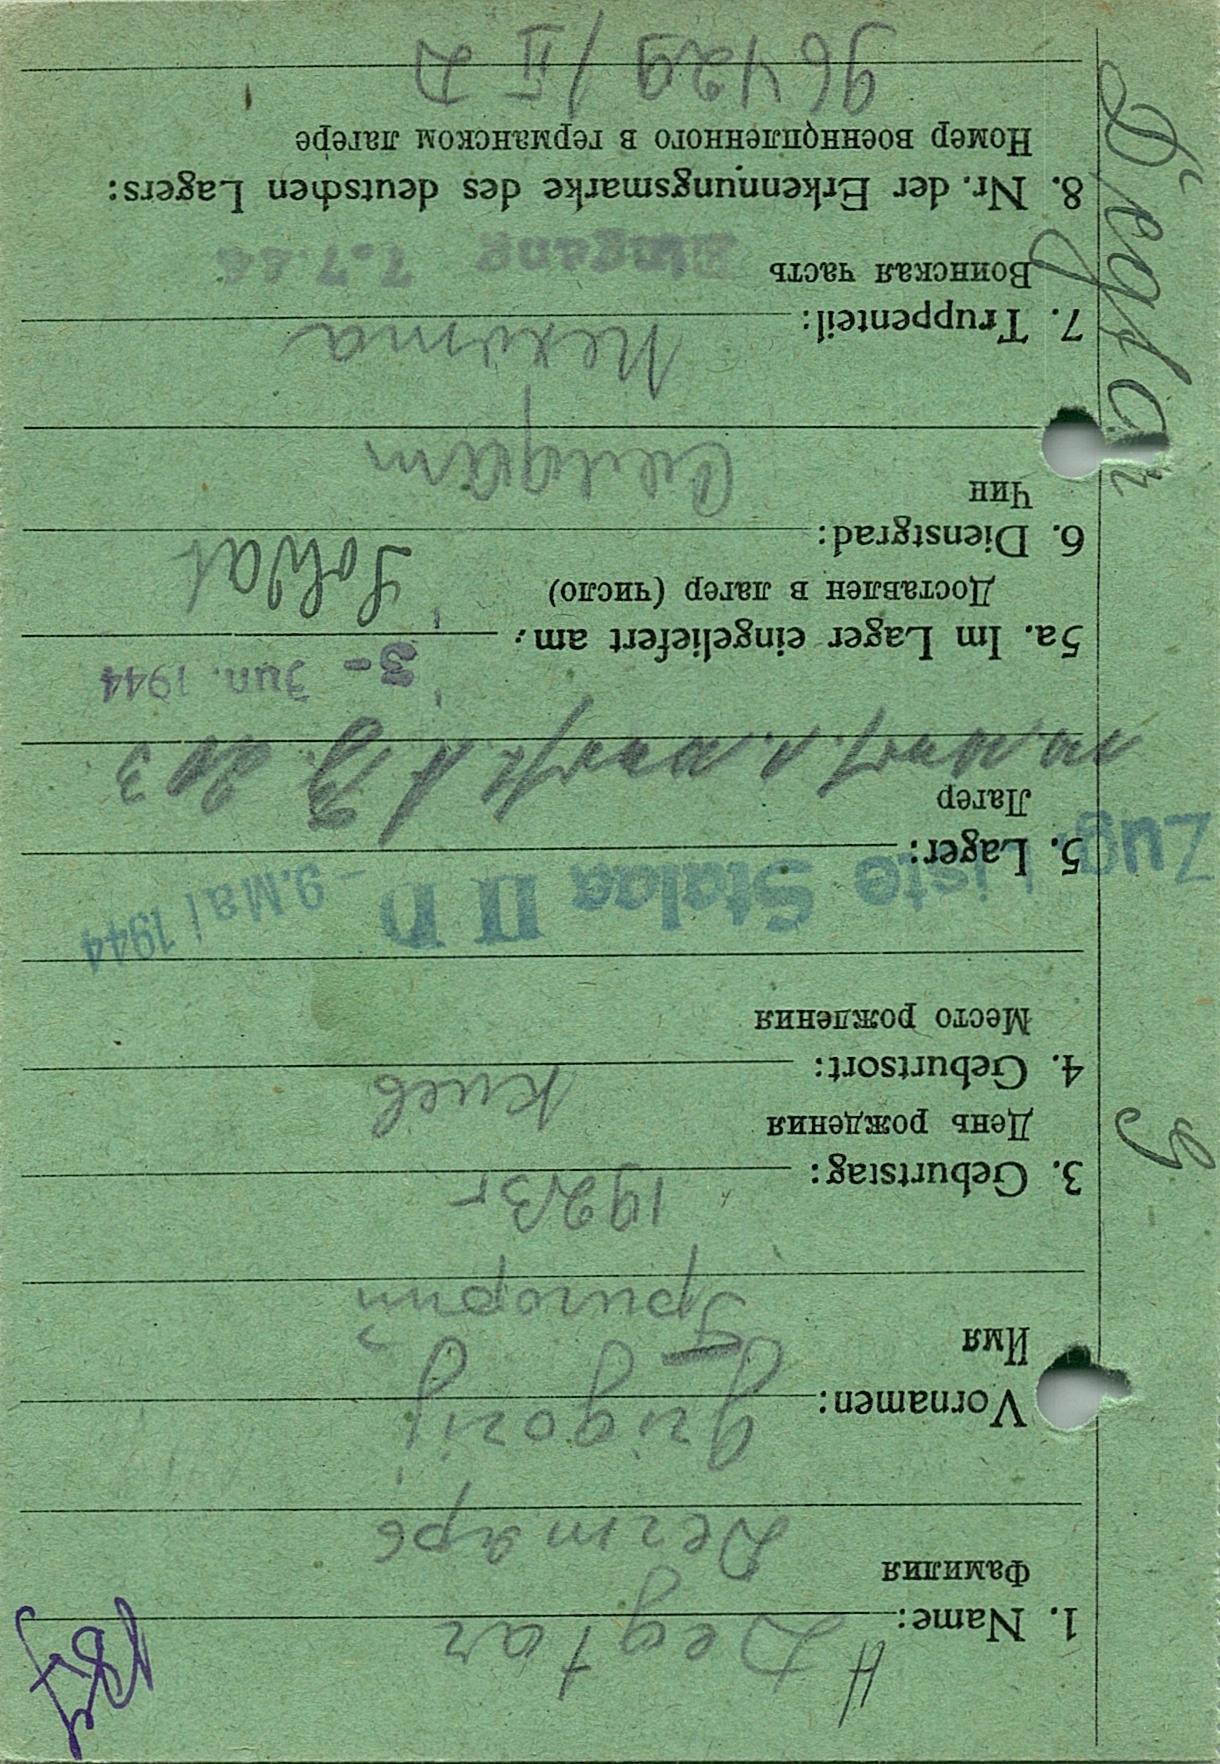 Degtar
G
1. Name: Degtar
Фамилия
Дегтярь
Vornamen: Grigorij
Имя
Григорий
3. Geburtstag: 1923 г
День рождения
4. Geburtsort: Киев
Место рождения
Zug. Liste Stalag II D - 9. Mai 1944
5. Lager:
Лагер
203
3 - Jun. 1944
5a. Im Lager eingeliefert am:
Доставлен в лагер (число)
Soldat
6. Dienstgrad:
Чин
Солдат
Пехота
7. Truppenteil:
Воинская часть
Eingang 7.7.44
8. Nr. der Erkennungsmarke des deutschen Lagers:
Номер военнопленного в германском лагере
96429 / II D